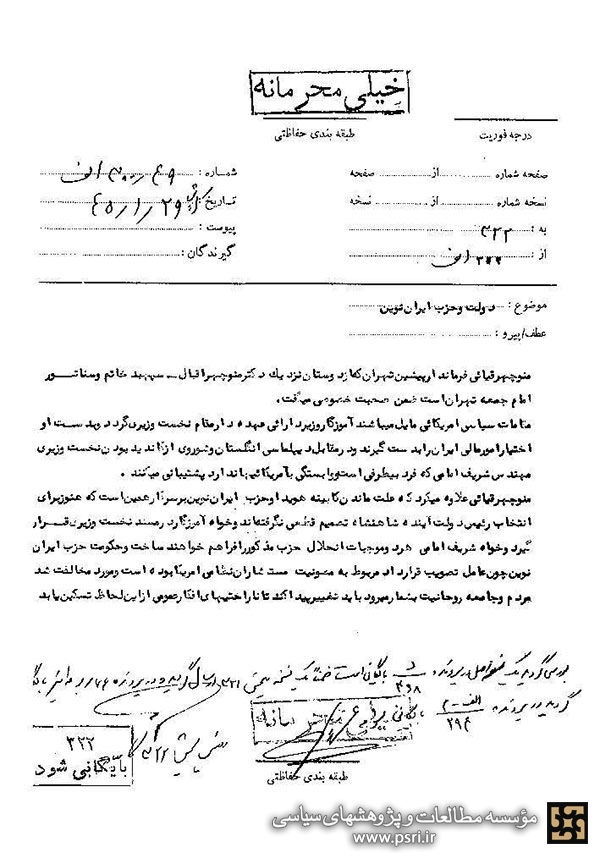 خیلی محرمانه
طبقه بندی حفاظتی
درجه فوریت
شماره :
صفحه شماره از صفحه
تاریخ : ۴۵/۱/۲۹
نسخه شماره از نسخه
پیوست :
به : ۳۲۲
گیرندگان :
از :
موضوع : دولت وحزب ایران نوین
عطف/پیرو :
منوچهرقیائی فرماندارپیشین تهران که ازدوستان نزدیك دکترمنوچهراقبال ــ سپهبد خاتم وسناتور
امام جمعه تهران است ضمن صحبت خصوصی میگفت .
مقامات سیاسی امریکائی مایل میباشند آموزگاروزیردارائی عهده دارمقام نخست وزیری گردد وبدست او
اختیارامورمالی ایران رابدست گیرند ودرمقابل دیپلماسی انگلستان وشوروی ازکاندید بودن نخست وزیری
مهندس شریف امامی که فرد بیطرفی است ووابستگی بآمریکائیهاندارد پشتیبانی میکنند .
منوچهرقیائی علاوه میکرد که علت ماندن کابینه هویدا وحزب ایران نوین برسرکارهمین است که هنوزبرای
انتخاب رئیس دولت آینده شاهنشاه تصمیم قطعی نگرفته اند وخواه آموزگارد رمسند نخست وزیری قرار
گیرد وخواه شریف امامی هردو موجبات انحلال حزب مذکوررافراهم خواهند ساخت وحکومت حزب ایران
نوین چون عامل تصویب قرارداد مربوط به مصونیت مستشاران نظامی امریکا بوده است ومورد مخالفت شد
مردم وجامعه روحانیت بشمارمیرود باید تغییرپیداکند تاناراحتیهای افکارعمومی ازاین لحاظ تسکین یابد
بایگانی
الف - ۳
۲۹۴
۳۲۲
بایگانی شود
طبقه بندی حفاظتی
مؤسسه مطالعات و پژوهشهای سیاسی
www.psri.ir